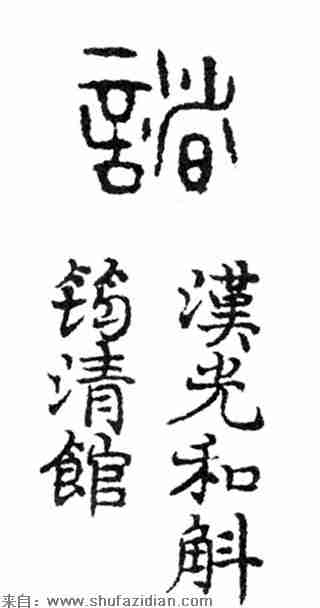 諸
漢光和斛
筠清館
来自：www.shufazidian.com